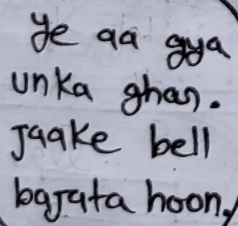 ye aa gya
unka ghar.
Jaake bell
bajata hoon,